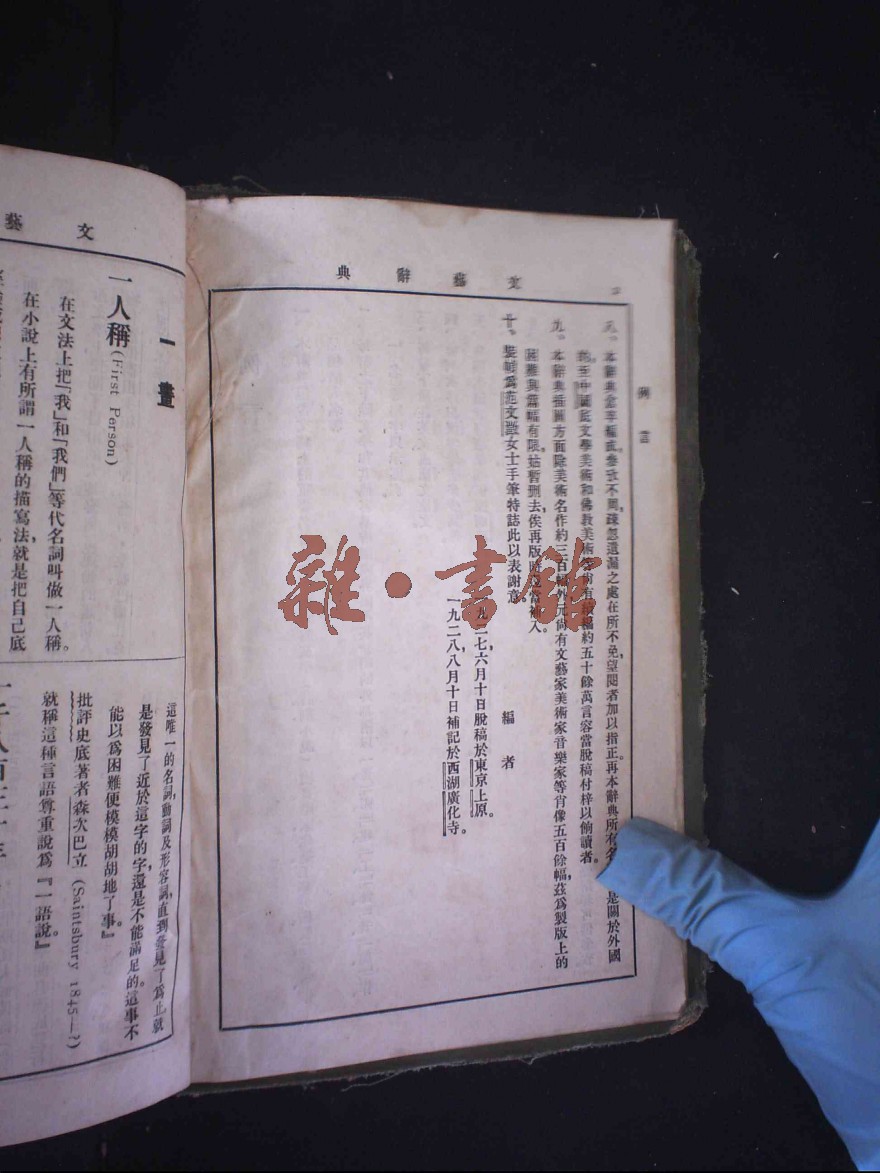 文藝辭典
例言
本辭典倉卒編成參攷不周疎忽遺漏之處在所不免望閱者加以指正。再本辭典所有名是關於外國
的。至中國底文學美術和佛教美術等約五十餘萬言容當脫稿付梓以餉讀者。
九、本辭典插圖方面除美術名作約三百幅外元尙有文藝家美術家音樂家等肖像五百餘幅，茲爲製版上的
困難與篇幅有限，姑暫刪去俟再版時當補入。
十、裝幀爲女士手筆特誌此以表謝意。
編者
九二七六月十日脫稿於東京上原。
一九二八八月十日補記於西湖廣化寺。
雜·書館
文藝
一畫
一人稱(First Person)
在文法上把『我』和『我們』等代名詞叫做一人稱。
在小說上有所謂一人稱的描寫法，就是把自己底
這唯一的名詞，動詞及形容詞，直到發見了爲止就
是發見了近於這字的字還是不能滿足的。這事不
能以爲困難便模模胡胡地了事』。
批評史底著者森次巴立(Saintsbury 1845—?)
就稱這種言語尊重說爲『一語說』